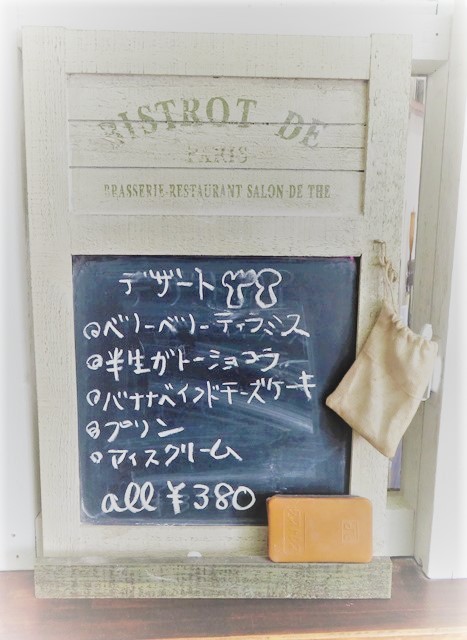 BISTROT DE
PARIS
BRASSERIE-RESTAURANT SALON-DE THE
デザート
◎ベリーベリーティラミス
◎半生ガトーショコラ
◎バナナベイクドチーズケーキ
◎プリン
◎アイスクリーム
all ¥380